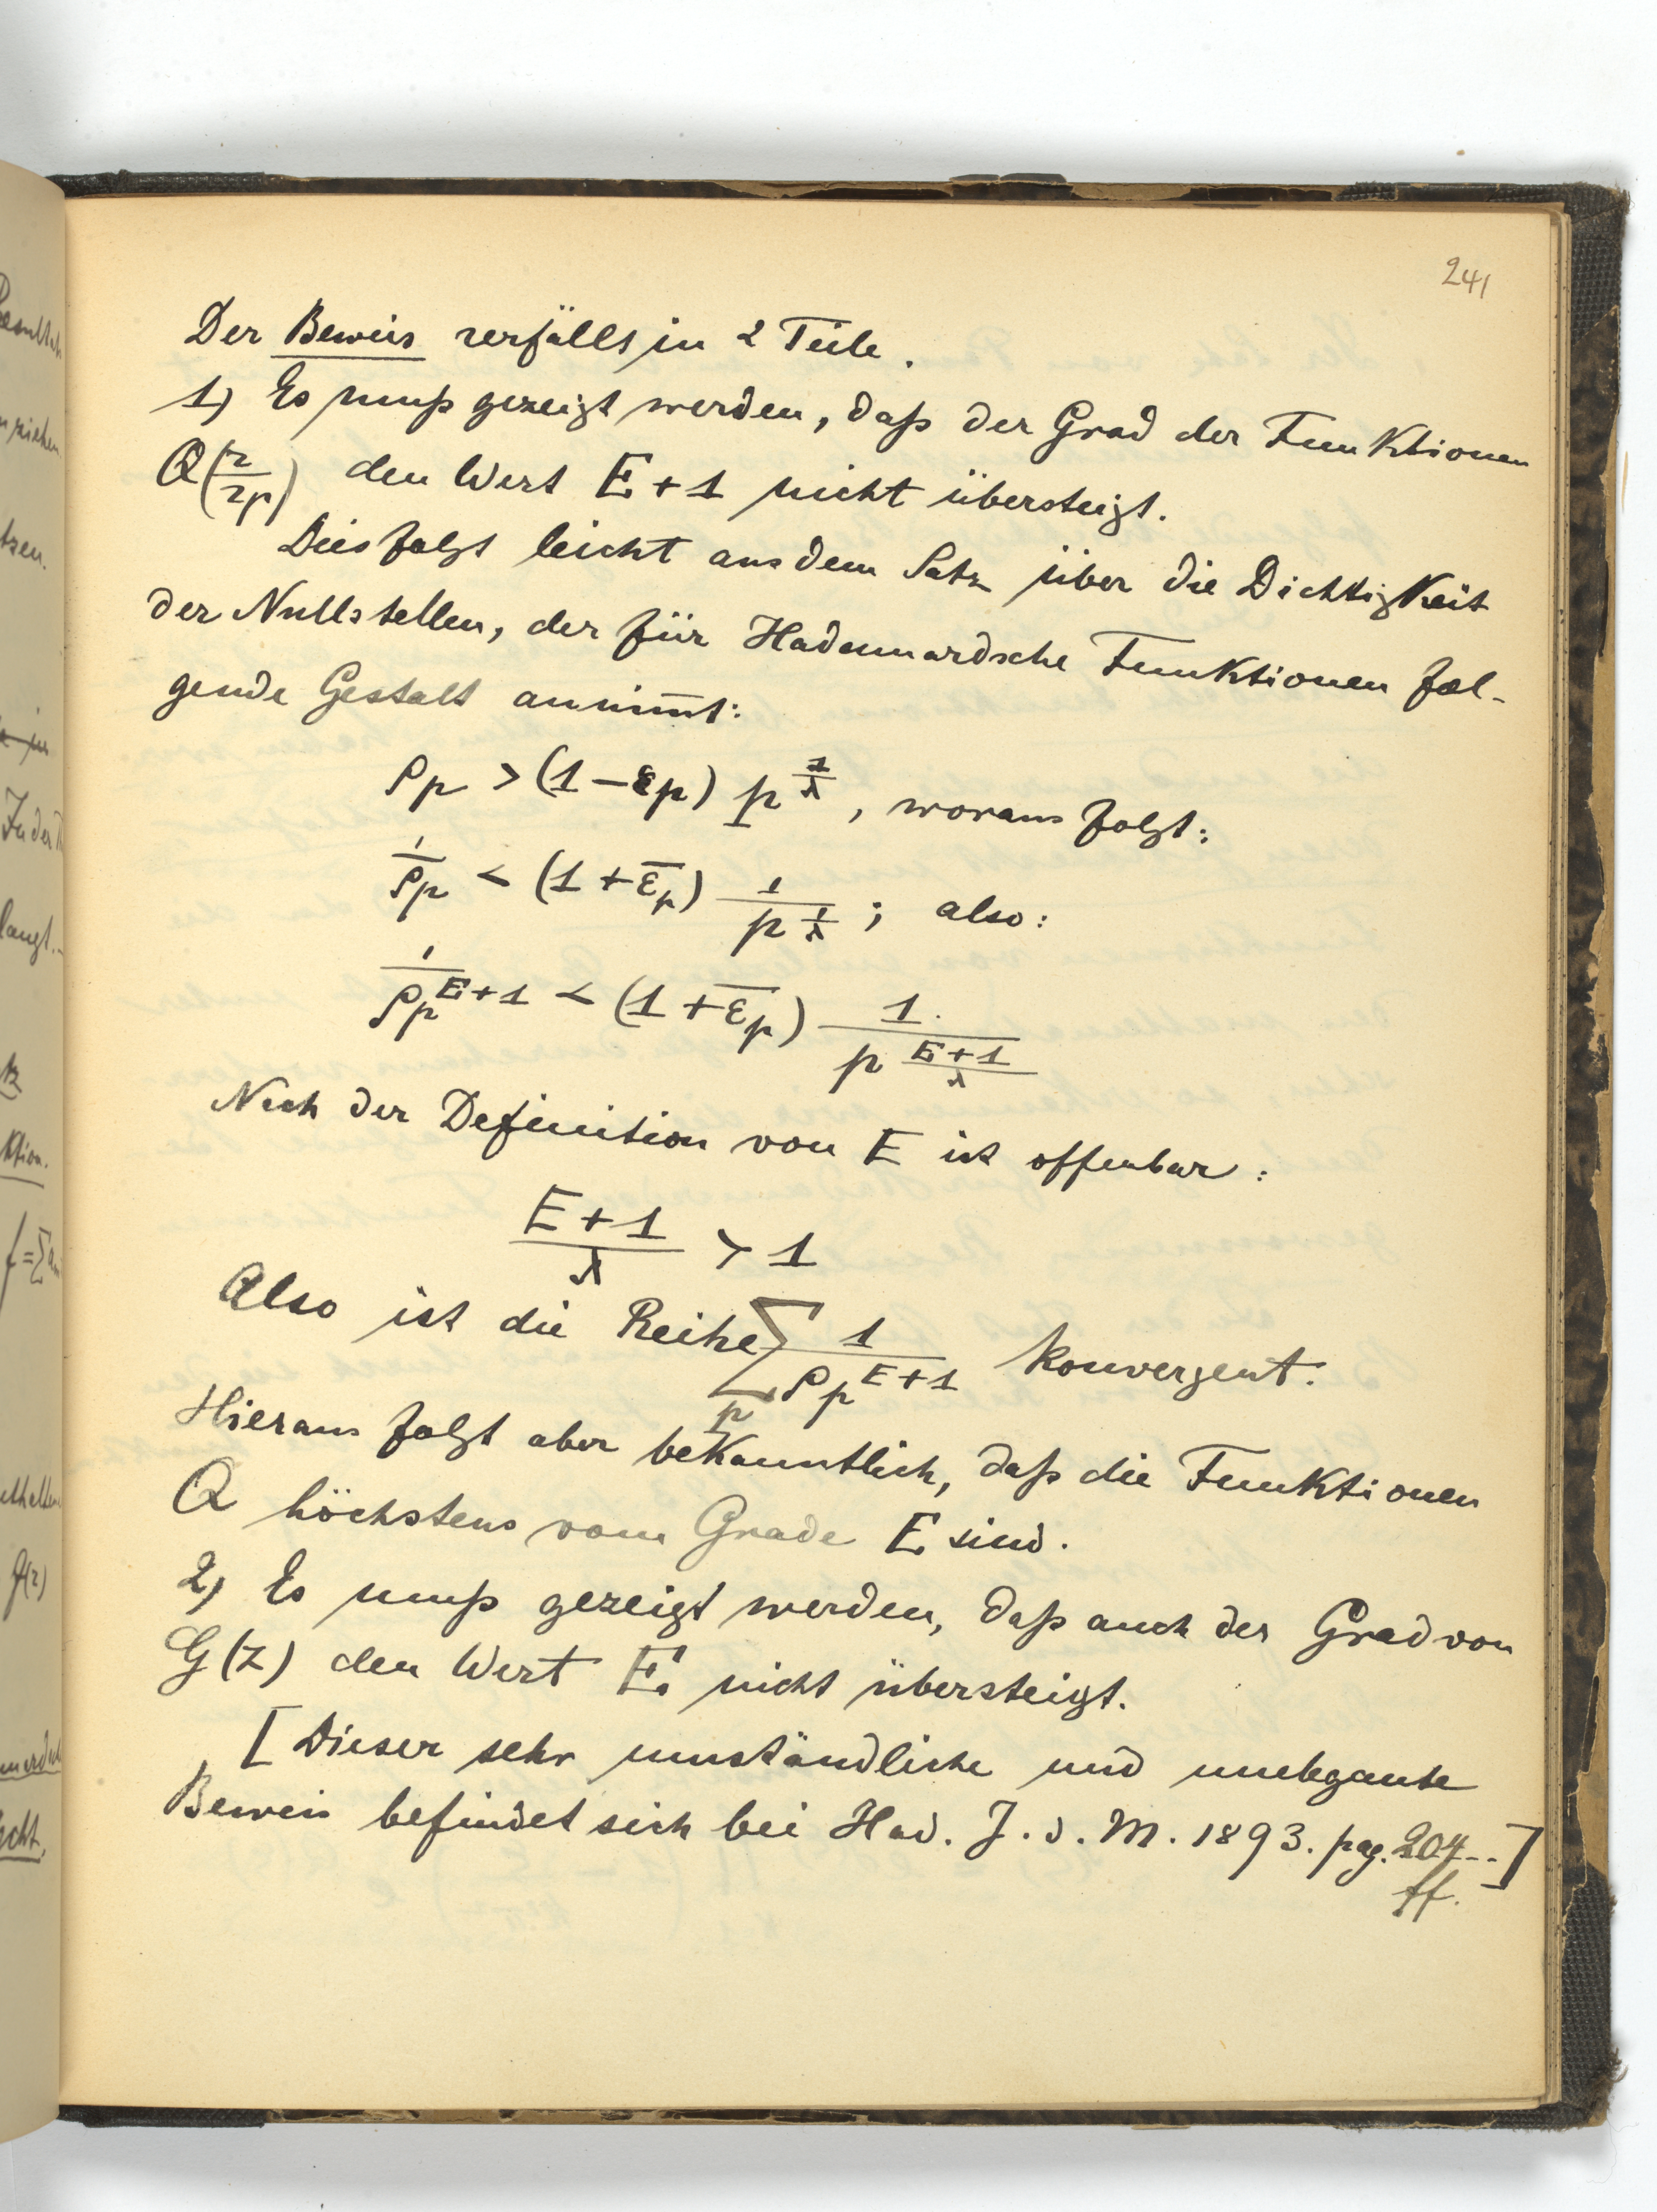 241
Der Beweis zerfällt in 2 Teile.
1) Es muß gezeigt werden, daß der Grad der Funktionen
Q(z/zp) den Wert E+1 nicht übersteigt.
Dies folgt leicht aus dem Satz über die Dichtigkeit
der Nullstellen, der für Hadamardsche Funktionen fol-
gende Gestalt annim̄t:
ρp > (1-εp) p^(1/λ), woraus folgt:
1/ρp < (1+ε̄p) 1/p^(1/λ); also:
1/ρp^(E+1) < (1+ε̄p) 1/p^((E+1)/λ)
Nach der Definition von E ist offenbar:
(E+1)/λ > 1
Also ist die Reihe ∑p 1/ρp^(E+1) konvergent.
Hieraus folgt aber bekanntlich, daß die Funktionen
Q höchstens vom Grade E sind.
2) Es muß gezeigt werden, daß auch der Grad von
G(z) den Wert E nicht übersteigt.
[Dieser sehr umständliche und unelegante
Beweis befindet sich bei Had. J. d. M. 1893. pag. 204--]
ff.